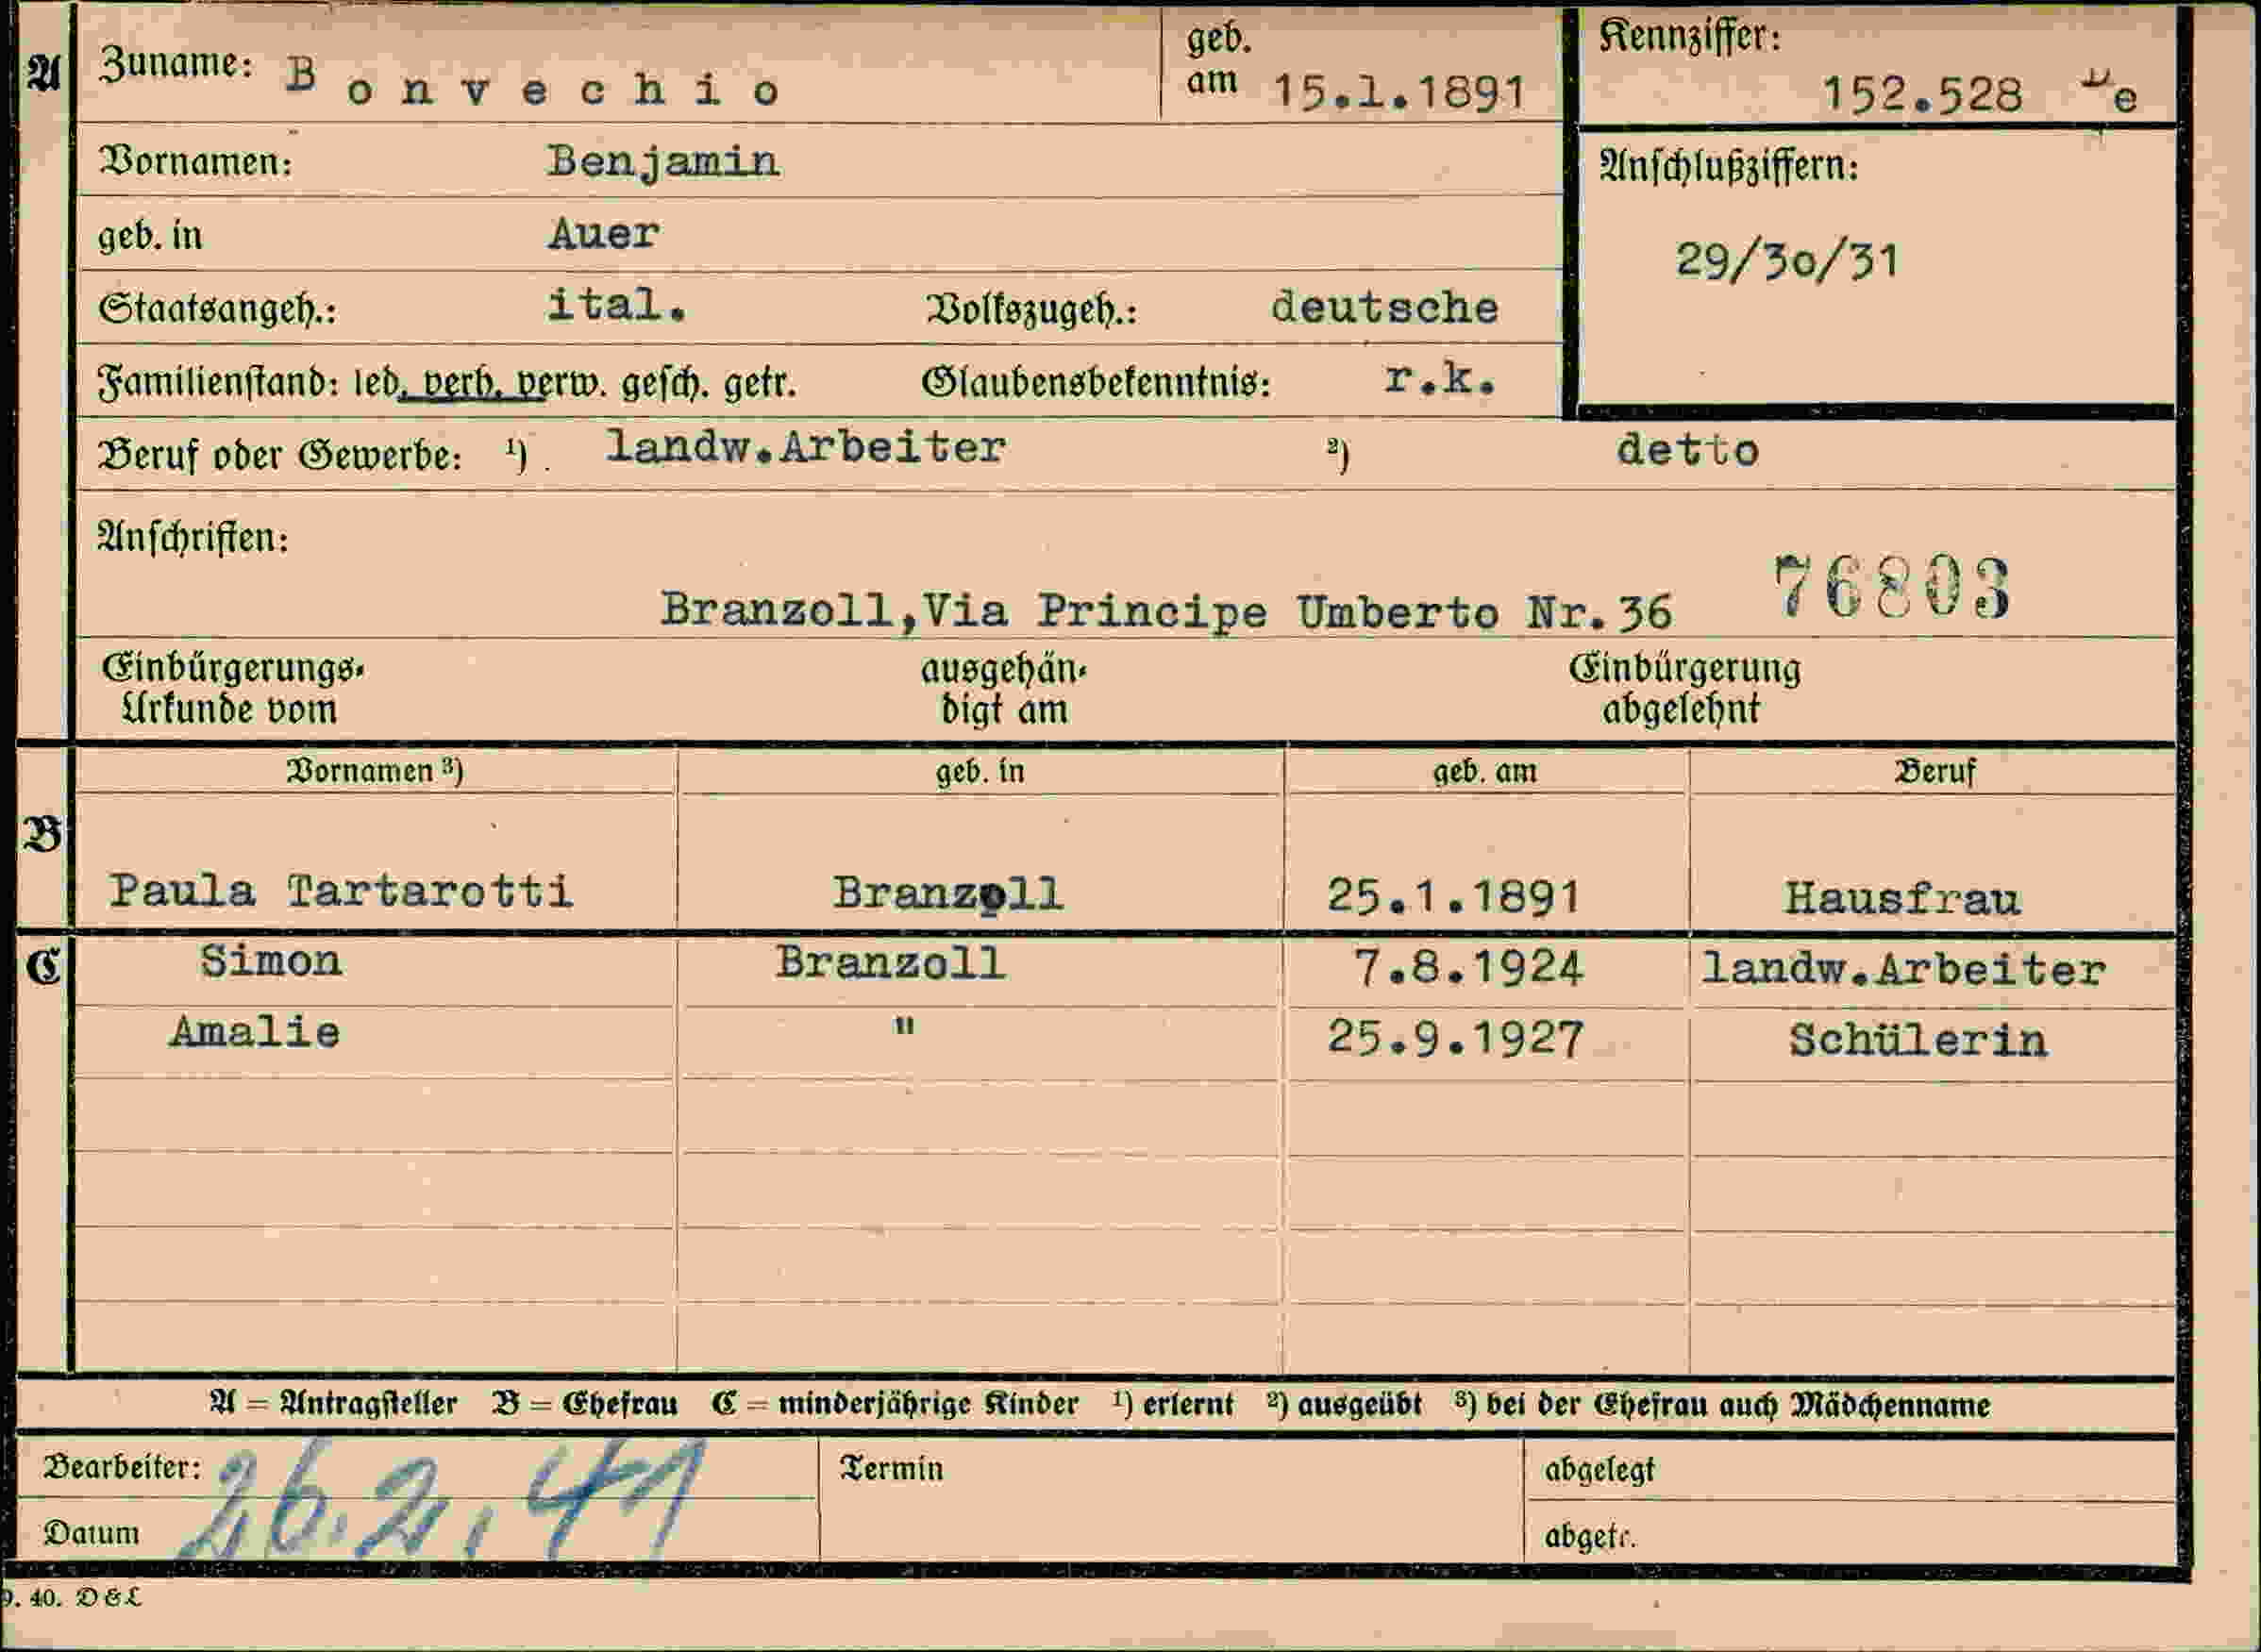 A Zuname: Bonvechio geb. am 15.1.1891 Kennziffer: 152.528 e
Vornamen: Benjamin Anschlußziffern:
geb. in Auer 29/30/31
Staatsangeh.: ital. Volkszugeh.: deutsche
Familienstand: led. verh. verw. gesch. getr. Glaubensbekenntnis: r.k.
Beruf oder Gewerbe: ¹) landw.Arbeiter ²) detto
Anschriften:
Branzoll,Via Principe Umberto Nr.36 76803
Einbürgerungs- ausgehän- Einbürgerung
Urkunde vom digt am abgelehnt
Vornamen ³) geb. in geb. am Beruf
B
Paula Tartarotti Branzoll 25.1.1891 Hausfrau
C Simon Branzoll 7.8.1924 landw.Arbeiter
Amalie " 25.9.1927 Schülerin
A = Antragsteller B = Ehefrau C = minderjährige Kinder ¹) erlernt ²) ausgeübt ³) bei der Ehefrau auch Mädchenname
Bearbeiter: 26.2.41 Termin abgelegt
Datum abgetr.
9. 40. D&L